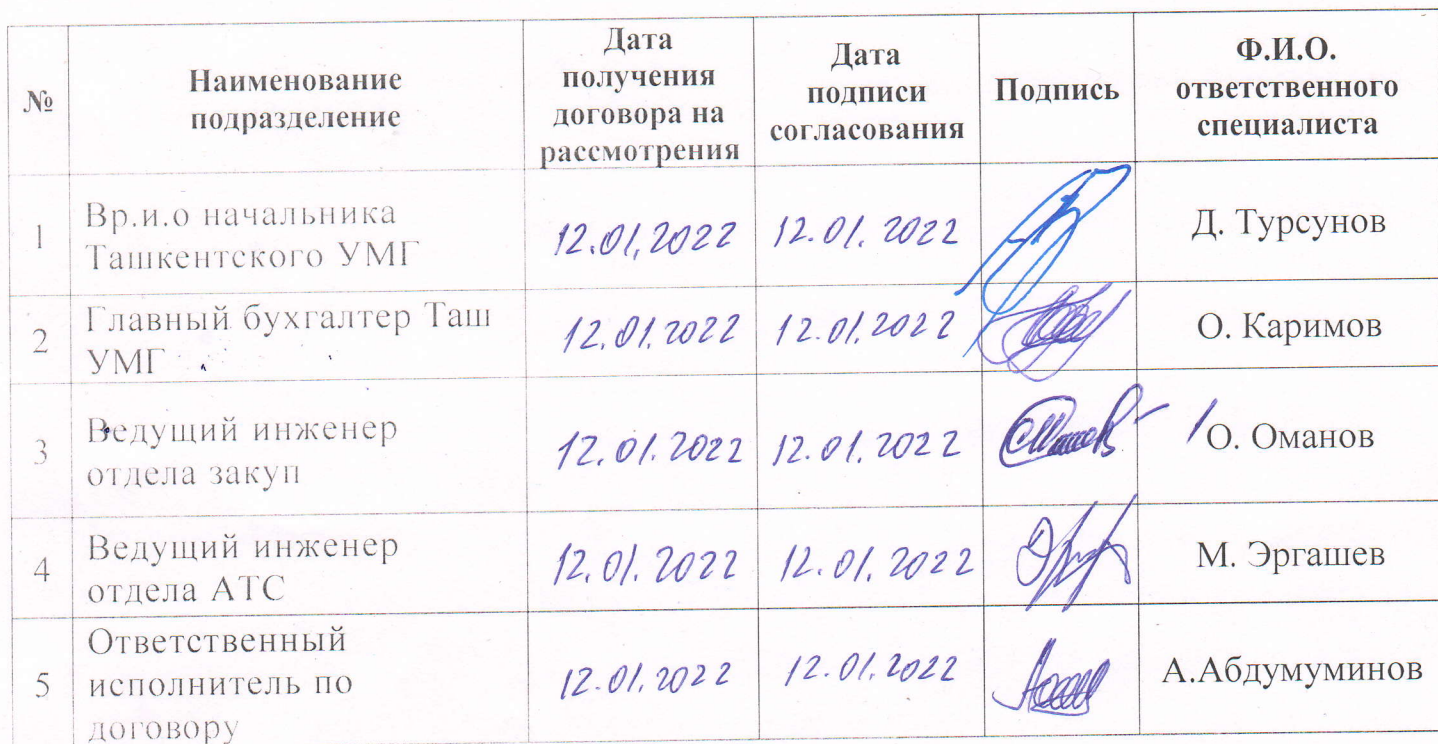 №
Наименование
подразделение
Дата
получения
договора на
рассмотрения
Дата
подписи
согласования
Подпись
Ф.И.О.
ответственного
специалиста
1
Вр.и.о начальника
Ташкентского УМГ
12.01.2022
12.01.2022
Д. Турсунов
2
Главный бухгалтер Таш
УМГ
12.01.2022
12.01.2022
О. Каримов
3
Ведущий инженер
отдела закуп
12.01.2022
12.01.2022
О. Оманов
4
Ведущий инженер
отдела АТС
12.01.2022
12.01.2022
М. Эргашев
5
Ответственный
исполнитель по
договору
12.01.2022
12.01.2022
А.Абдумуминов